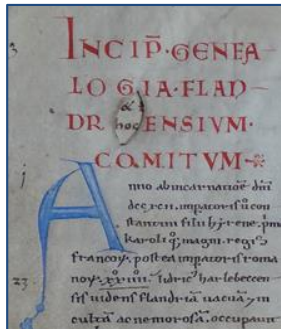 INCIP̅·GENEA
LOGIA·FLAN
DRENSIVM·
COMITVM
Anno abincarnatioe dn̄i
dcc.xc.ii. imparoris cōn
stantini filii hyrene. p̄mi
karoli magni. regis
francoꝝ. postea imparoris roma
noꝝ. xxiiii. lidric harlebeccen
sis uidens flandriā uacuā ꝫ in
cultā ac nemorosā. occupauit